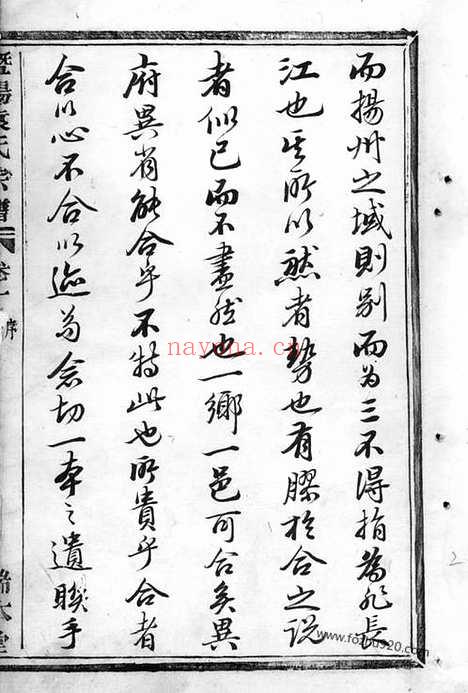 而揚州之域則別而為三不得指為非長
江也其所以然者勢也有膠於合之說
者似已而不盡然也一鄉一邑可合矣異
府異省能合乎不特此也所貴乎合者
合以心不合以迹苟念切一本之遺聯手
暨陽袁氏宗譜
卷一 序
nayona.cn
www.fozhu920.com
2